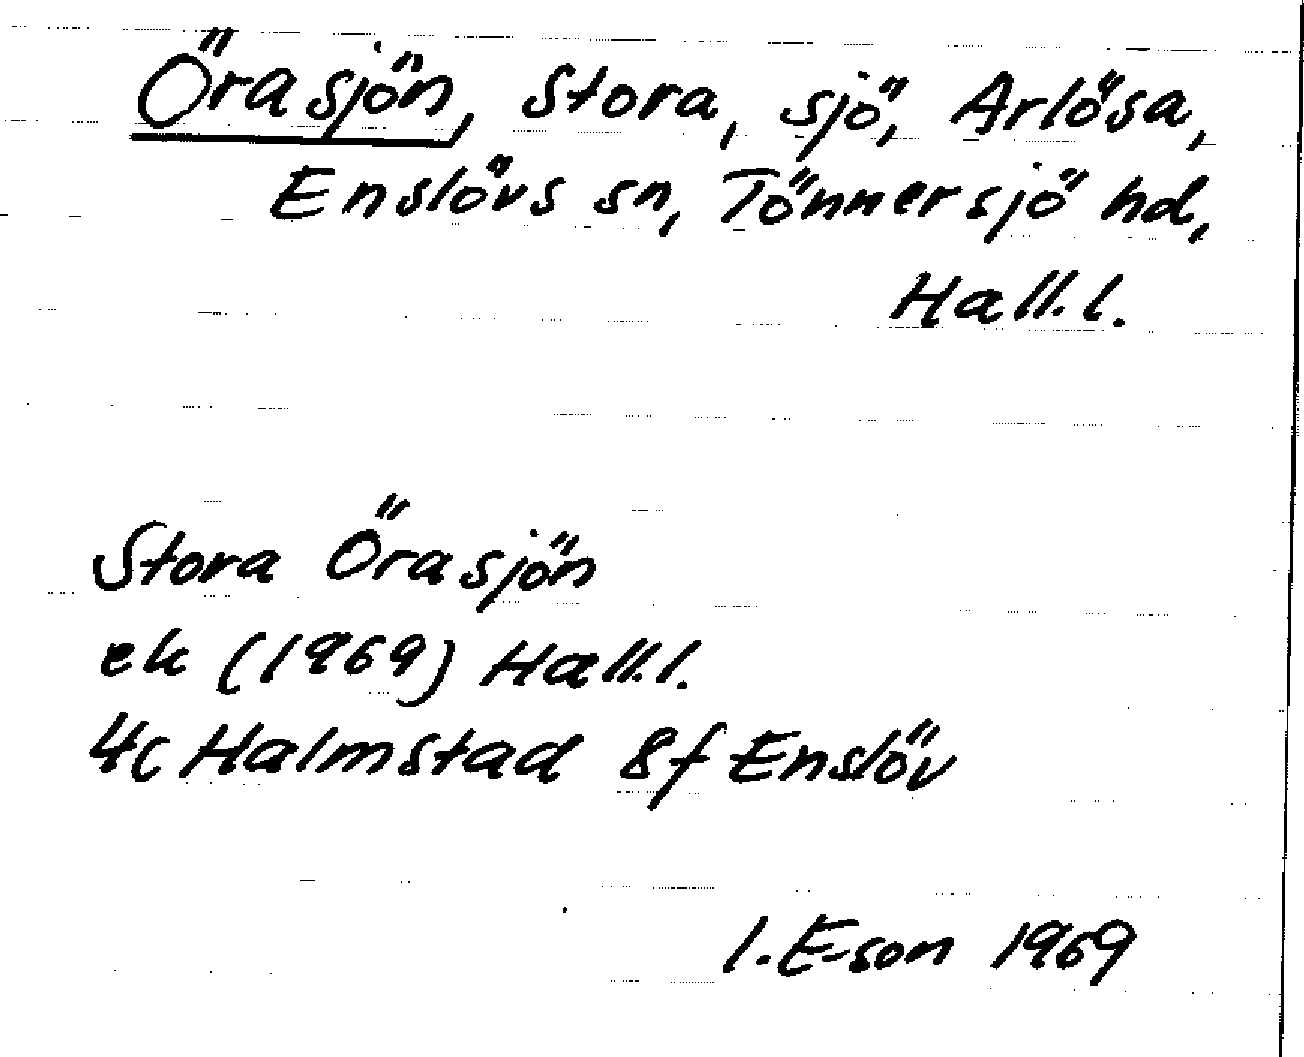 Örasjön, Stora, sjö, Arlösa,
Enslövs sn, Tönnersjö hd,
Hall.l.
Stora Örasjön
ek (1969) Hall.l.
4c Halmstad 8f Enslöv
I. E-son 1969